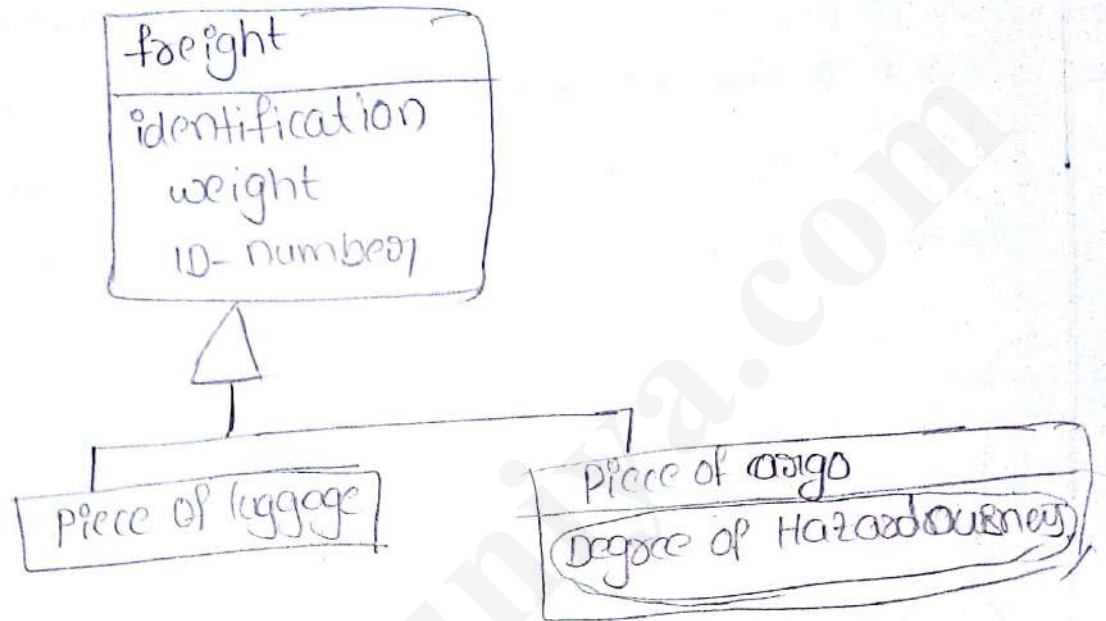 freight
identification
weight
ID-number
piece of luggage
piece of cargo
Degree of Hazardousness